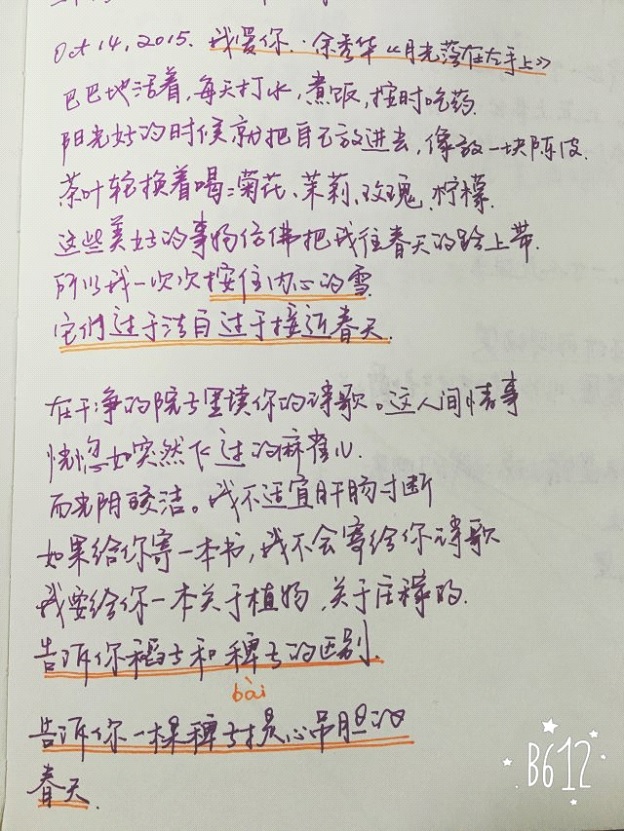 Oct 14, 2015. 我爱你. 余秀华《月光落在左手上》
巴巴地活着,每天打水,煮饭,按时吃药.
阳光好的时候就把自己放进去,像放一块陈皮.
茶叶轮换着喝:菊花、茉莉、玫瑰、柠檬.
这些美好的事物仿佛把我往春天的路上带.
所以我一次次按住内心的雪.
它们过于洁白过于接近春天.
在干净的院子里读你的诗歌。这人间情事
恍惚如突然飞过的麻雀儿.
而光阴皎洁。我不适宜肝肠寸断
如果给你寄一本书,我不会寄给你诗歌
我要给你一本关于植物,关于庄稼的.
告诉你稻子和稗子的区别.
bài
告诉你一棵稗子提心吊胆的
春天.
B612